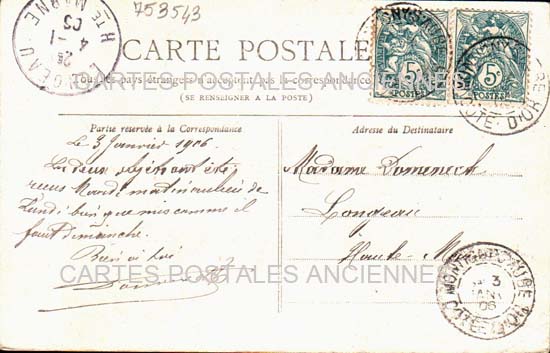 753543
CARTE POSTALE
Tous les pays étrangers n'acceptent pas la correspondance
(SE RENSEIGNER A LA POSTE)
5c
POSTES
5c
POSTES
CÔTE D'OR
Hte MARNE
4 -1
CARTES POSTALES ANCIENNES
Partie réservée à la Correspondance
Le 3 Janvier 1906
Les deux objets ont été
reçus Mardi matin au lieu de
Lundi bien que mis comme il
faut Dimanche.
Bien à toi
Adresse du Destinataire
Madame Domeneck
Longeau
Haute-Marne
CARTES POSTALES ANCIENNES
3
JANV
06